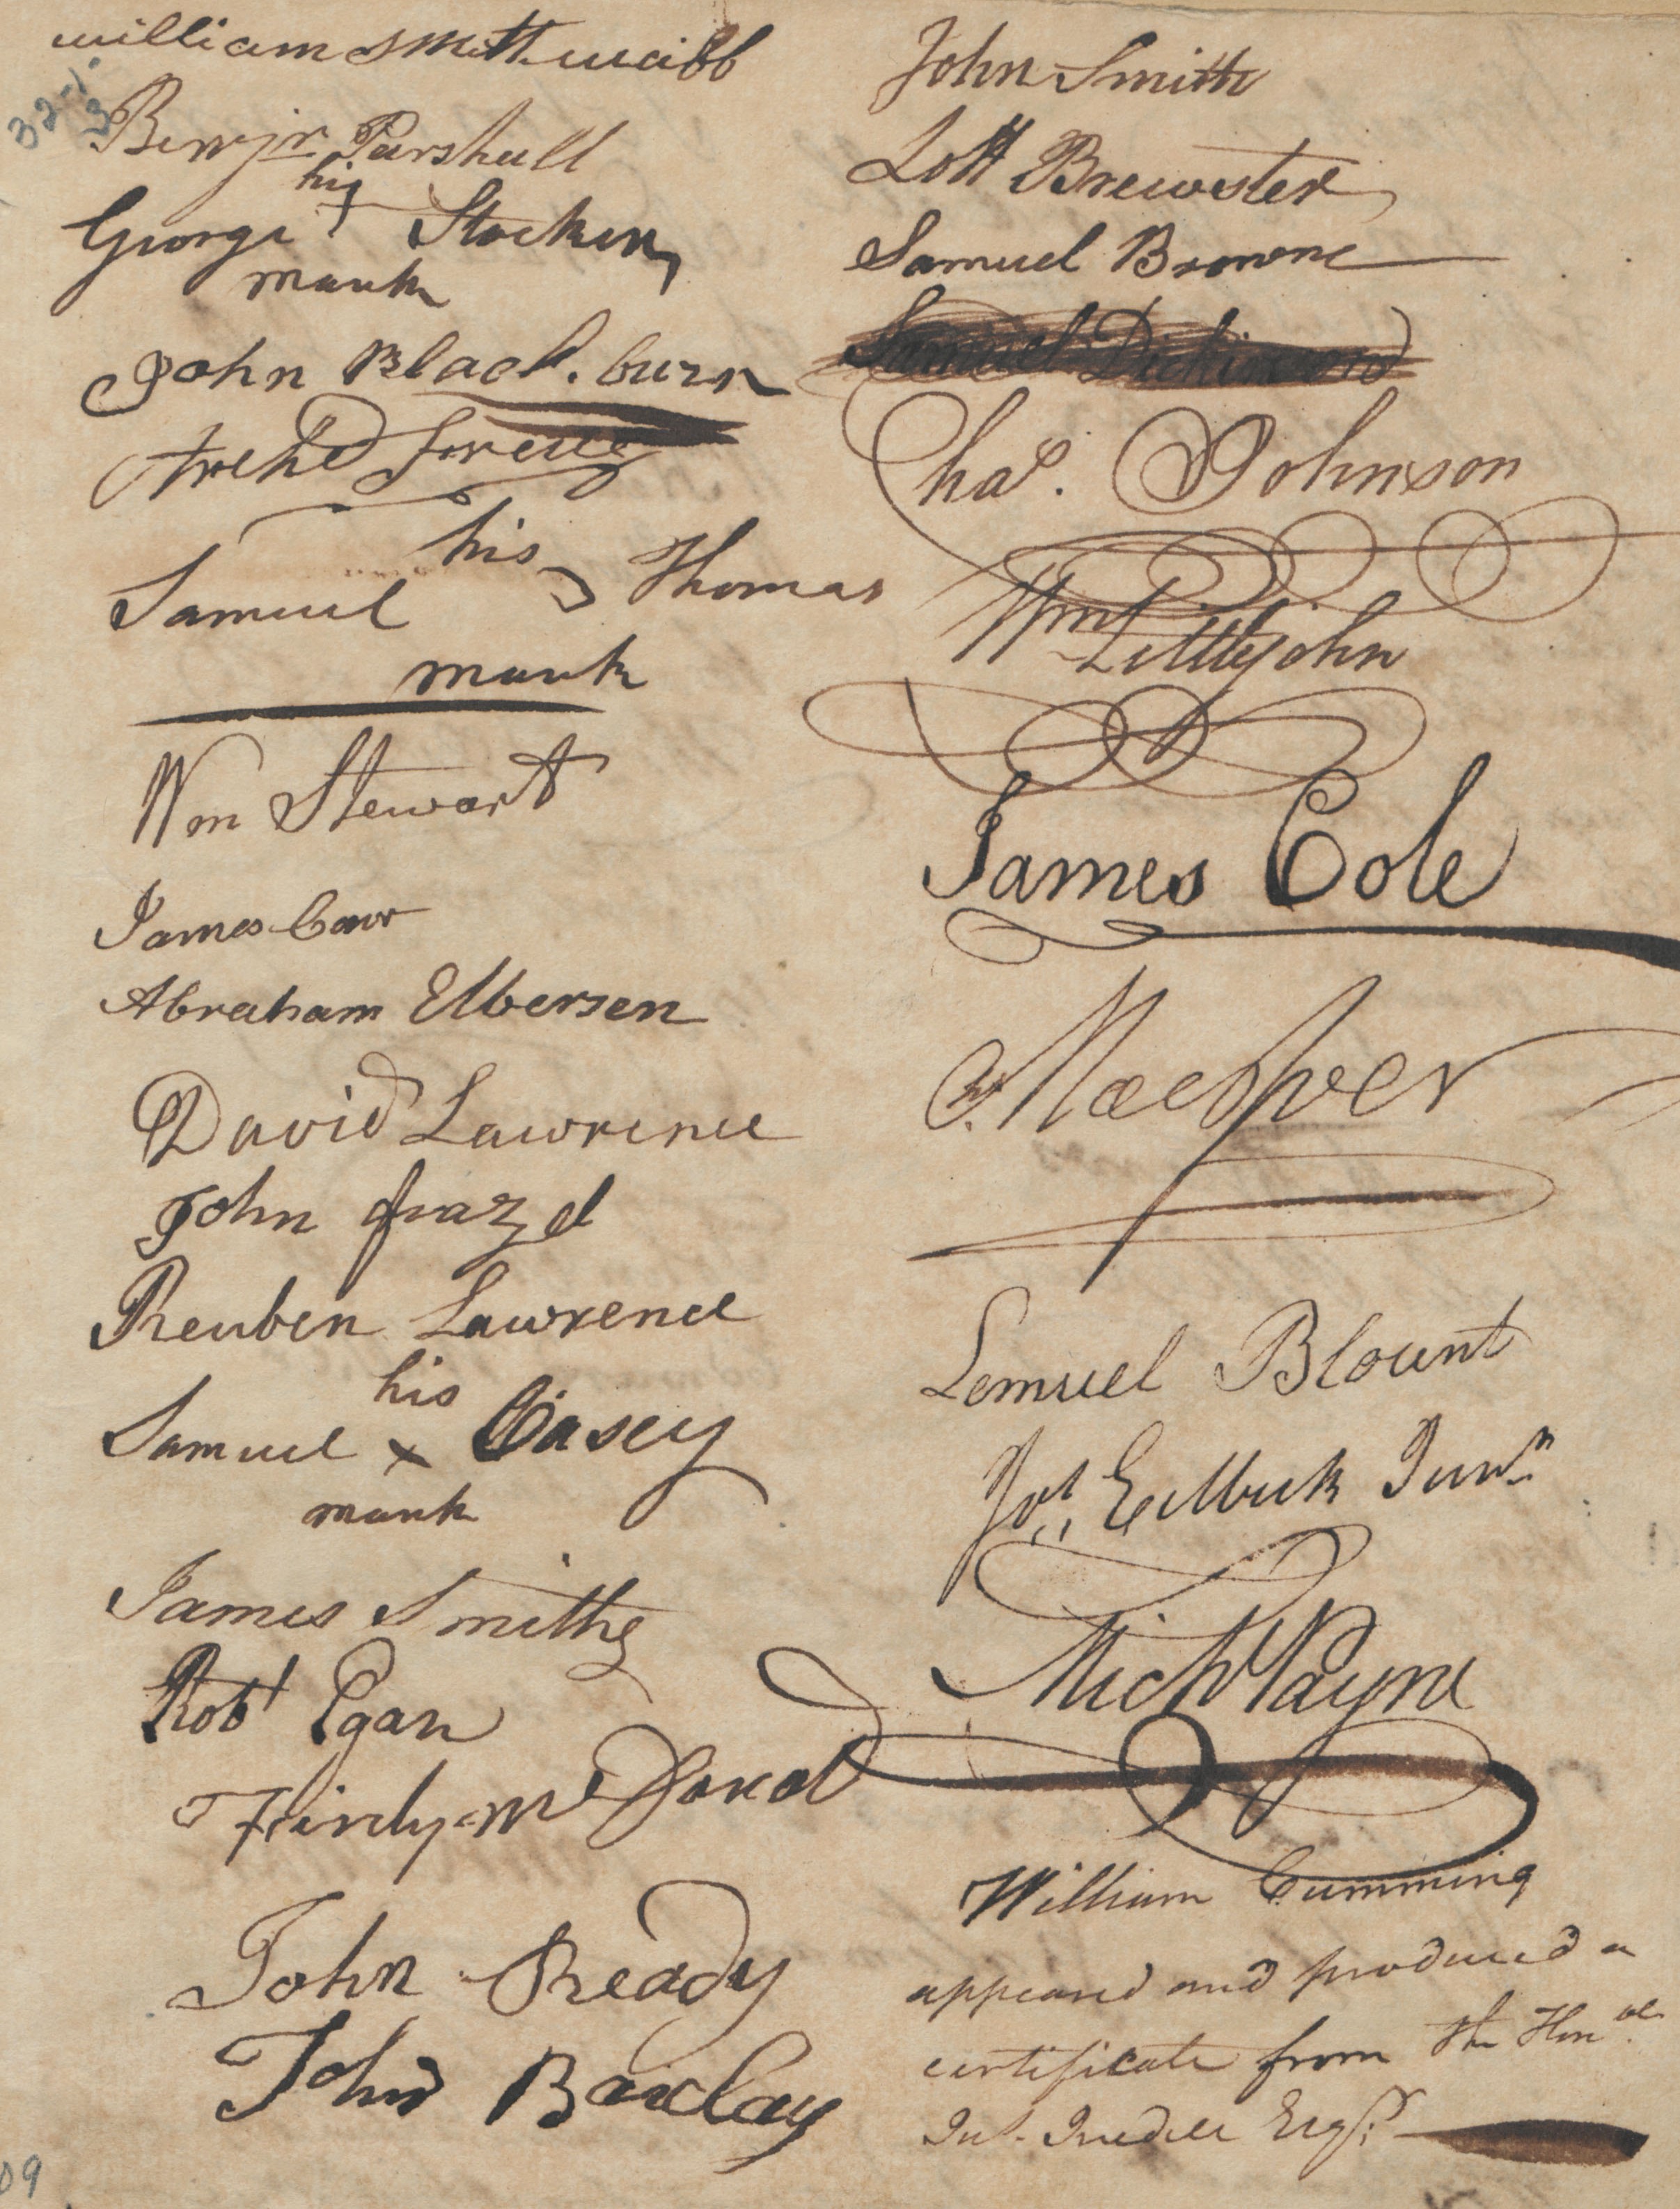 william Smith waibb
32-1-
3
Benjn Parshall
his
George + Stocken
mark
John Black.burn
Archd
his
Samuel Thomas
mark
Wm Stewart
James Carr
Abraham Elbersen
David Lawrence
John frazel
Reuben Lawrence
his
Samuel x Casey
mark
James Smith
Robt Egan
Findly Mc
John Ready
John Barclay
09
John Smith
Lott Brewster
Samuel Browne
Samuel Dickinson
Chas. Johnson
Wm Littlejohn
James Cole
MacIver
Lemuel Blount
Jos. Junr
Michl Payne
William Cumming
appeared and produced a
certificate from the Honble
Jas. Iredell Esqr.